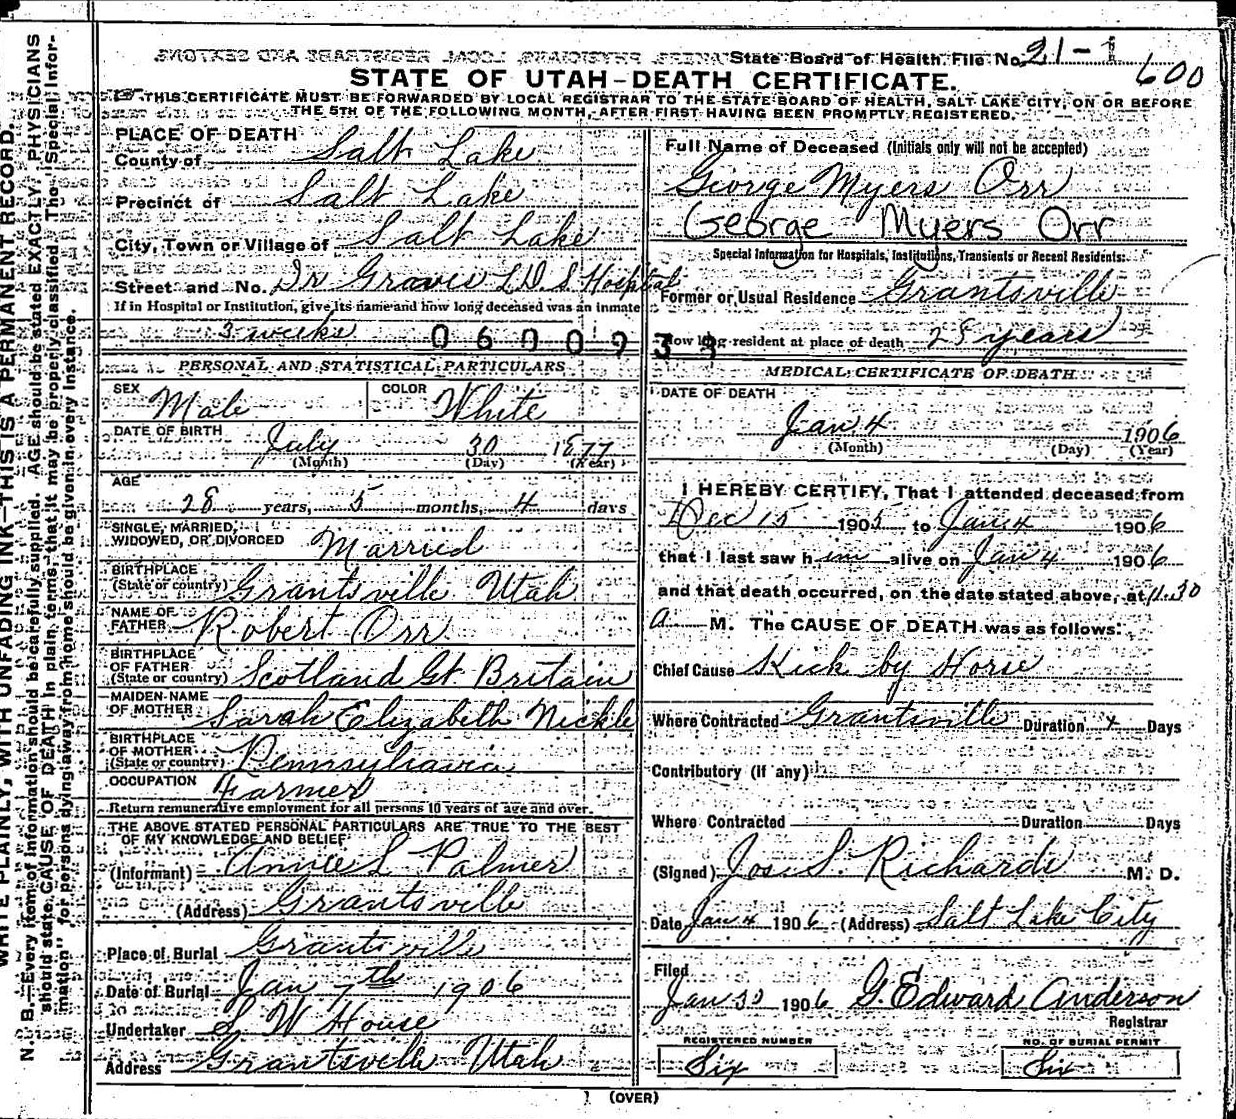 State Board of Health File No. 21-1
600
STATE OF UTAH-DEATH CERTIFICATE.
THIS CERTIFICATE MUST BE FORWARDED BY LOCAL REGISTRAR TO THE STATE BOARD OF HEALTH, SALT LAKE CITY, ON OR BEFORE
THE 5TH OF THE FOLLOWING MONTH, AFTER FIRST HAVING BEEN PROMPTLY REGISTERED.
WRITE PLAINLY, WITH UNFADING INK—THIS IS A PERMANENT RECORD.
N. B.—Every item of information should be carefully supplied. AGE should be stated EXACTLY. PHYSICIANS
should state CAUSE OF DEATH in plain terms, that it may be properly classified. The "Special Infor-
mation" for persons dying away from home should be given in every instance.
PLACE OF DEATH
County of Salt Lake
Precinct of Salt Lake
City, Town or Village of Salt Lake
Street and No. Dr Graves L D S Hospital
If in Hospital or Institution, give its name and how long deceased was an inmate
3 weeks
060093
PERSONAL AND STATISTICAL PARTICULARS
SEX Male COLOR White
DATE OF BIRTH July 30 1877
(Month) (Day) (Year)
AGE
28 years, 5 months, 4 days
SINGLE, MARRIED,
WIDOWED, OR DIVORCED Married
BIRTHPLACE
(State or country) Grantsville Utah
NAME OF
FATHER Robert Orr
BIRTHPLACE
OF FATHER
(State or country) Scotland Gt Britain
MAIDEN NAME
OF MOTHER Sarah Elizabeth Nickle
BIRTHPLACE
OF MOTHER
(State or country) Pennsylvania
OCCUPATION Farmer
Return remunerative employment for all persons 10 years of age and over.
THE ABOVE STATED PERSONAL PARTICULARS ARE TRUE TO THE BEST
OF MY KNOWLEDGE AND BELIEF
(Informant) Annie L Palmer
(Address) Grantsville
Place of Burial Grantsville
Date of Burial Jan 7th 1906
Undertaker S W House
Address Grantsville Utah
Full Name of Deceased (Initials only will not be accepted)
George Myers Orr
George Myers Orr
Special Information for Hospitals, Institutions, Transients or Recent Residents:
Former or Usual Residence Grantsville
How long resident at place of death 28 years
MEDICAL CERTIFICATE OF DEATH
DATE OF DEATH
Jan 4 1906
(Month) (Day) (Year)
I HEREBY CERTIFY, That I attended deceased from
Dec 15 1905 to Jan 4 1906
that I last saw him alive on Jan 4 1906
and that death occurred, on the date stated above, at 11.30
a M. The CAUSE OF DEATH was as follows:
Chief Cause Kick by Horse
Where Contracted Grantsville Duration Days
Contributory (if any)
Where Contracted Duration Days
(Signed) Jos. S. Richards M. D.
Date Jan 4 1906 (Address) Salt Lake City
Filed
Jan 30 1906 G. Edward Anderson
Registrar
REGISTERED NUMBER
Six
NO. OF BURIAL PERMIT
Six
(OVER)